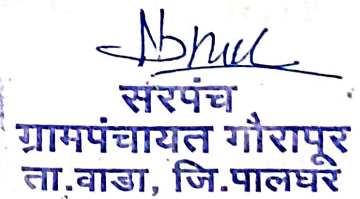 सरपंच
ग्रामपंचायत गौरापूर
ता.वाडा, जि.पालघर